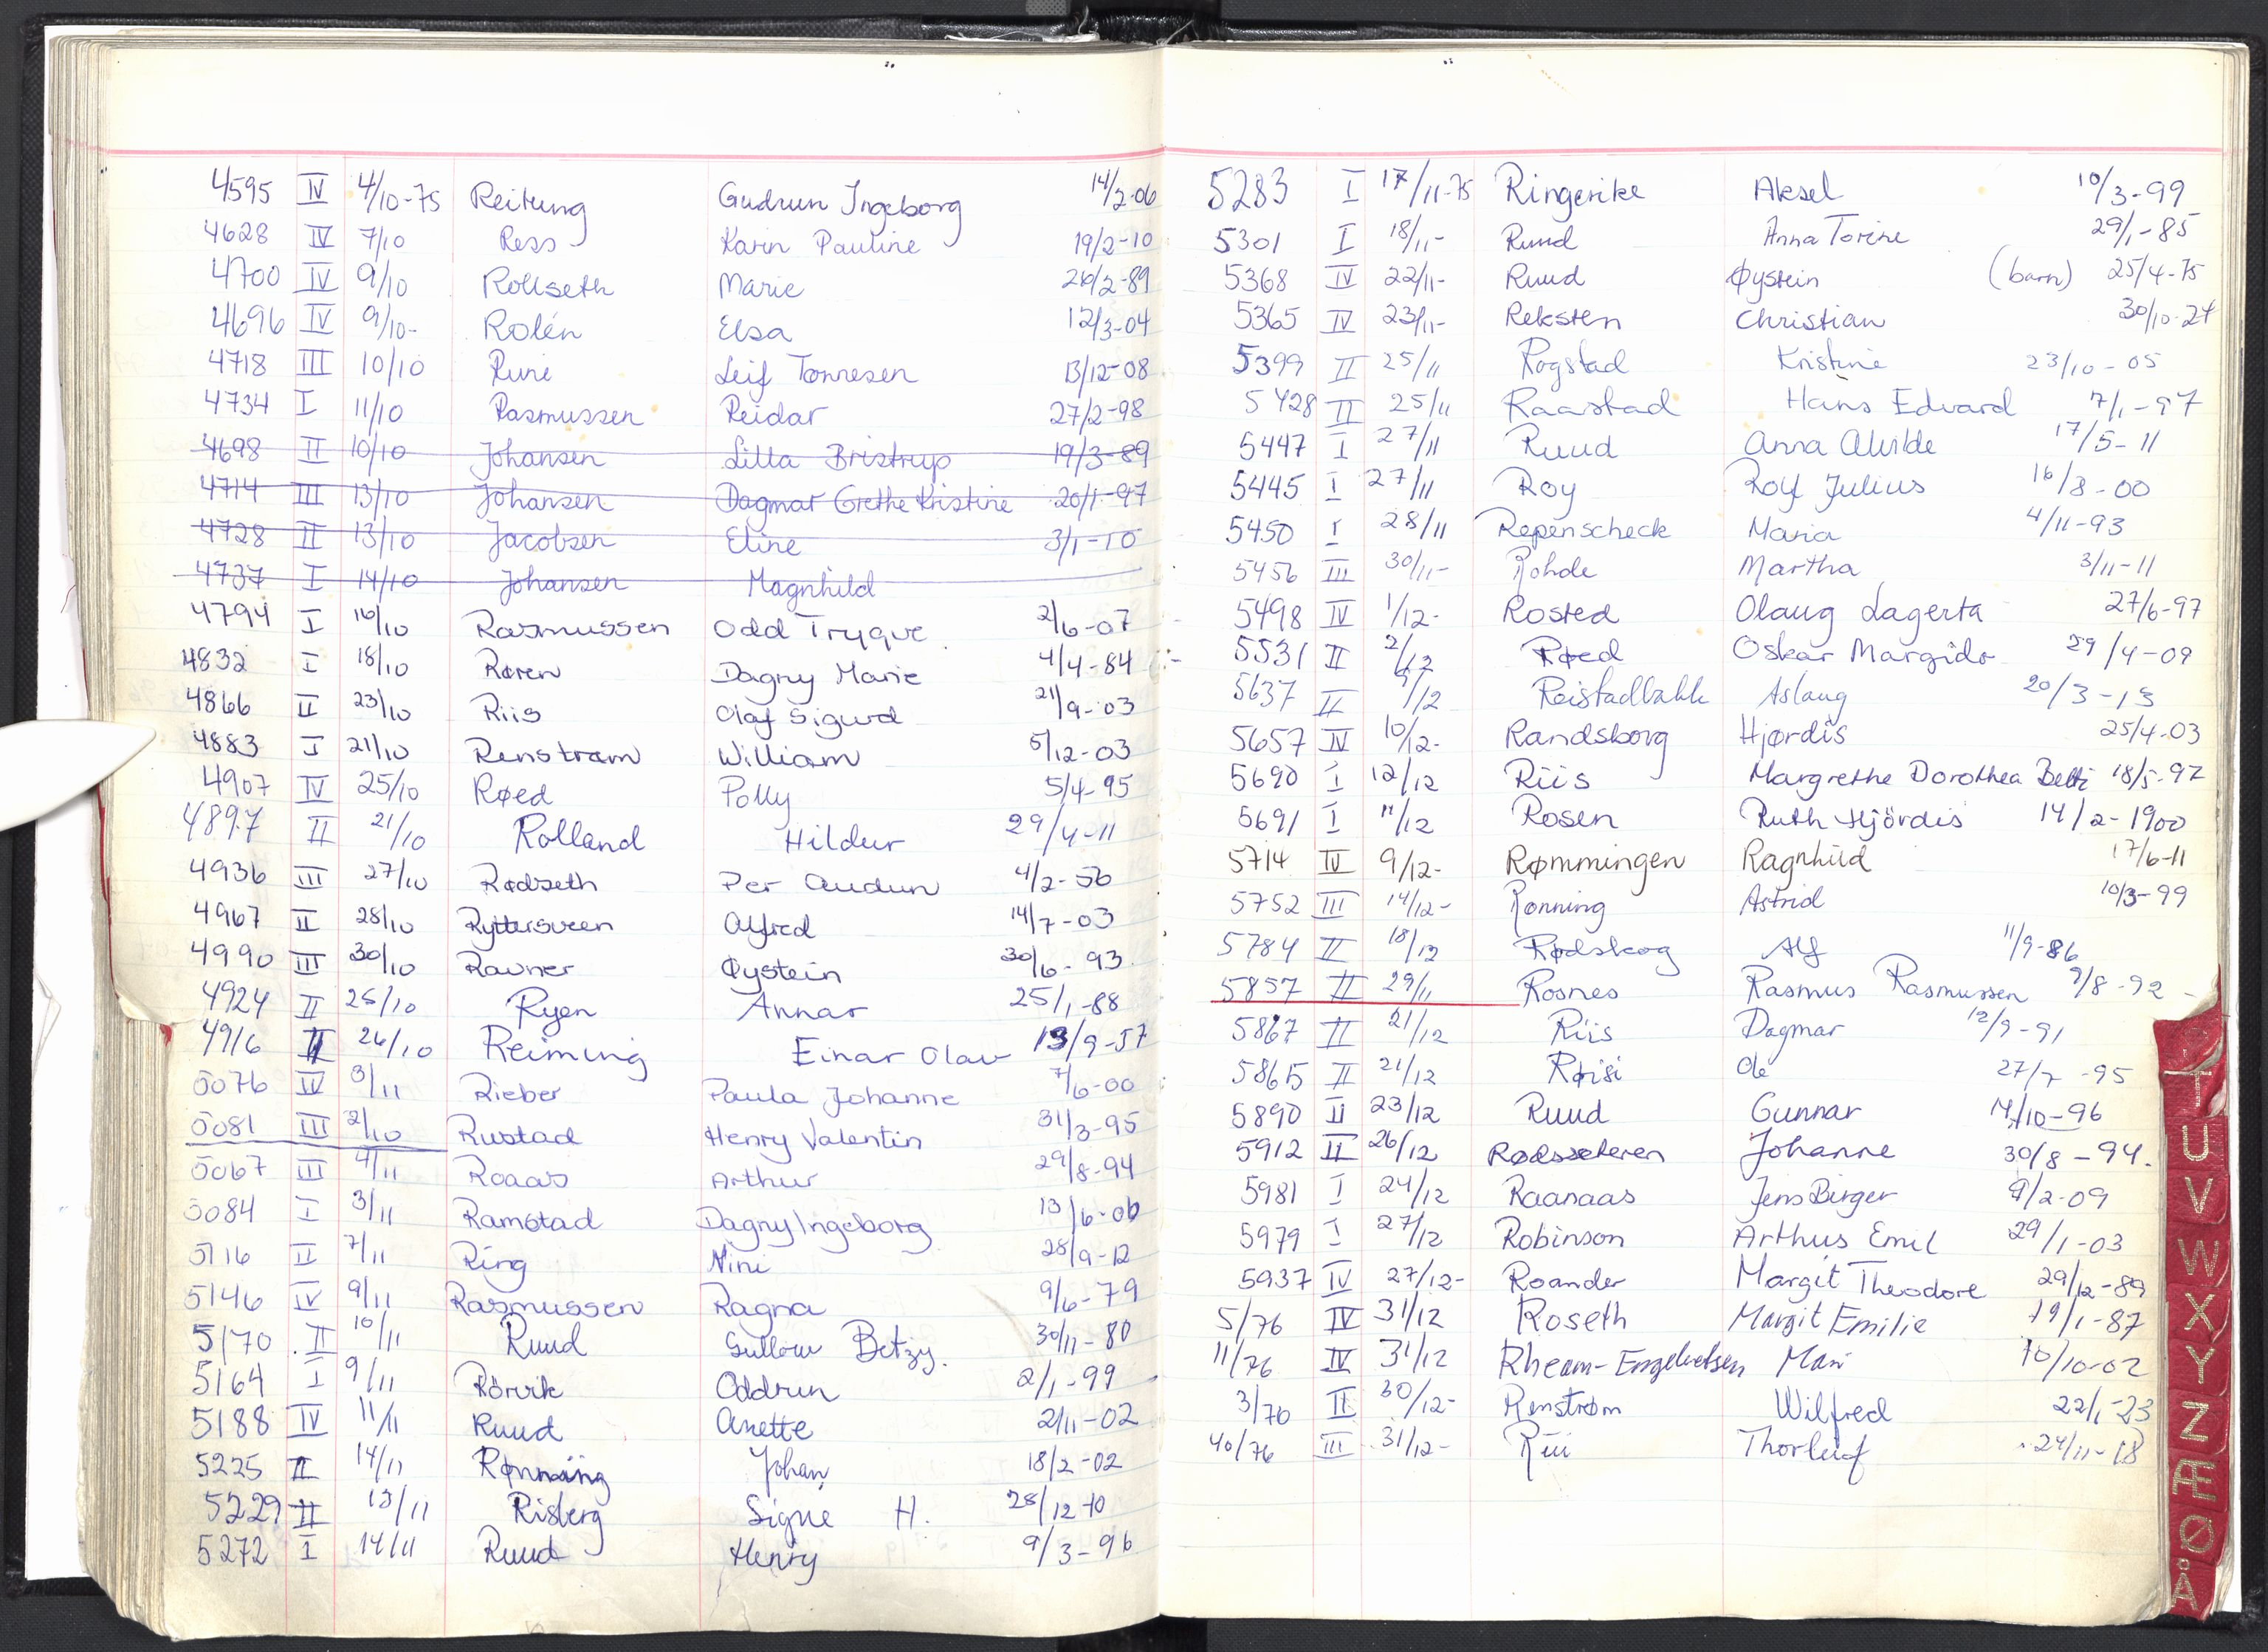 4595 IV 4/10-75 Reitung Gudrun Ingeborg 14/2-06
4628 IV 7/10 Ress Karin Pauline 19/2-10
4700 IV 9/10 Rollseth Marie 26/2-89
4696 IV 9/10- Rolén Elsa 12/3-04
4718 III 10/10 Rune Leif Tønnesen 13/12-08
4734 I 11/10 Rasmussen Reidar 27/2-98
4698 II 10/10 Johansen Lilla Bristrup 19/3-89
4714 III 13/10 Johansen Dagmar Grethe Kristine 20/1-97
4728 II 13/10 Jacobsen Eline 3/1-10
4737 I 14/10 Johansen Magnhild
4794 I 16/10 Rasmussen Odd Trygve 2/6-07
4832 I 18/10 Røren Dagny Marie 4/4-84
4866 II 23/10 Riis Olaf Sigurd 21/9-03
4883 I 21/10 Renstrøm William 5/12-03
4907 IV 25/10 Røed Polly 5/4-95
4897 II 21/10 Rolland Hildur 29/4-11
4936 III 27/10 Rødseth Per Audun 4/2-56
4967 II 28/10 Ryttersveen Alfred 14/7-03
4990 III 30/10 Ravner Øystein 30/6-93
4924 II 25/10 Ryen Annar 25/1-88
4916 II 26/10 Reiming Einar Olav 13/9-57
5076 IV 3/11 Rieber Paula Johanne 7/6-00
5081 III 2/10 Rustad Henry Valentin 31/3-95
5067 III 4/11 Roaas Arthur 29/8-94
5084 I 3/11 Ramstad Dagny Ingeborg 13/6-06
5116 II 7/11 Ring Nini 28/9-12
5146 IV 9/11 Rasmussen Ragna 9/6-79
5170 II 10/11 Ruud Betzy. 30/11-80
5164 I 9/11 Rörvik Oddrun 2/1-99
5188 IV 11/11 Ruud Anette 2/11-02
5225 II 14/11 Rønning Johan 18/2-02
5229 II 13/11 Risberg Signe H. 28/12-10
5272 I 14/11 Ruud Henry 9/3-96
5283 I 17/11-75 Ringerike Aksel 10/3-99
5301 I 18/11- Ruud Anna Torine 29/1-85
5368 IV 22/11- Ruud Øystein (barn) 25/4-75
5365 IV 23/11- Reksten Christian 30/10-24
5399 II 25/11 Rogstad Kristine 23/10-05
5428 II 25/11 Raastad Hans Edvard 7/1-97
5447 I 27/11 Ruud Anna Alvilde 17/5-11
5445 I 27/11 Roy Rolf Julius 16/8-00
5450 I 28/11 Repenscheck Maria 4/11-93
5456 III 30/11- Rohde Martha 3/11-11
5498 IV 1/12- Rosted Olaug Lagerta 27/6-97
5531 II 2/12 Røed Oskar Margido 29/4-09
5637 II 9/12 Reistadbakk Aslaug 20/3-13
5657 IV 10/12- Randsborg Hjørdis 25/4-03
5690 I 12/12 Riis Margrethe Dorothea Betti 18/5-97
5691 I 11/12 Rosen Ruth Hjördis 14/2-1900
5714 IV 9/12- Rømmingen Ragnhild 17/6-11
5752 III 14/12- Rønning Astrid 10/3-99
5784 II 18/12 Rødskog Alf 11/9-86
5857 II 29/11 Rosnes Rasmus Rasmussen 9/8-92
5867 II 21/12 Riis Dagmar 12/9-91
5865 II 21/12 Røisi Ole 27/7-95
5890 II 23/12 Ruud Gunnar 14/10-96
5912 II 26/12 Rødsseteren Johanne 30/8-94.
5981 I 24/12 Raanaas Jens Birger 9/2-09
5979 I 27/12 Robinson Arthus Emil 29/1-03
5937 IV 27/12- Roander Margit Theodore 29/12-89
5/76 IV 31/12 Roseth Margit Emilie 19/1-87
11/76 IV 31/12 Rheam-Engebretsen Mari 10/10-02
3/76 II 30/12- Renstrøm Wilfred 22/1-23
40/76 III 31/12- Rui Thorleif 24/11-18
T
U
V
W
X
Y
Z
Æ
Ø
Å